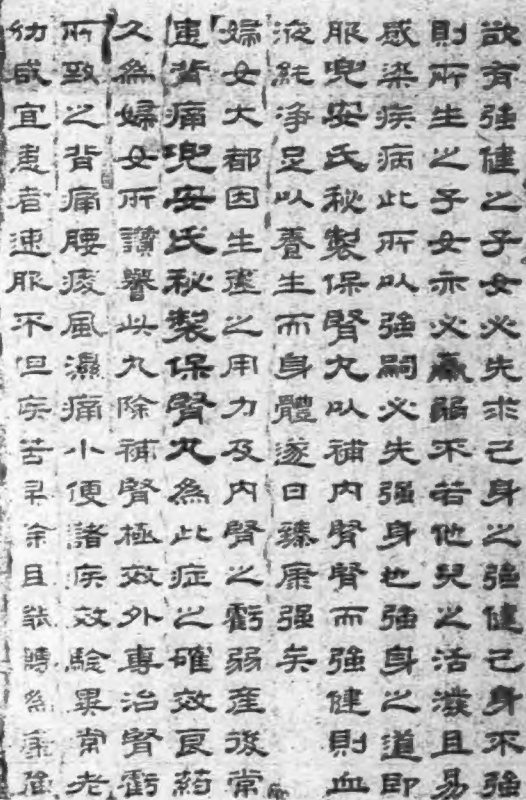 欲有強健之子女必先求己身之強健己身不強
則所生之子女亦必羸弱不若他兒之活潑且易
感染疾病此所以強嗣必先強身也強身之道即
服兜安氏秘製保腎丸以補內腎腎而強健則血
液純淨足以養生而身體遂日臻康强矣
婦女大都因生產之用力及內腎之虧弱產後常
患背痛兜安氏秘製保腎丸為此症之確效良藥
久為婦女所讚譽此丸除補腎極效外專治腎虧
所致之背痛腰痠風濕痛小便諸疾效驗異常老
幼咸宜患者速服不但疾苦早除且為康強